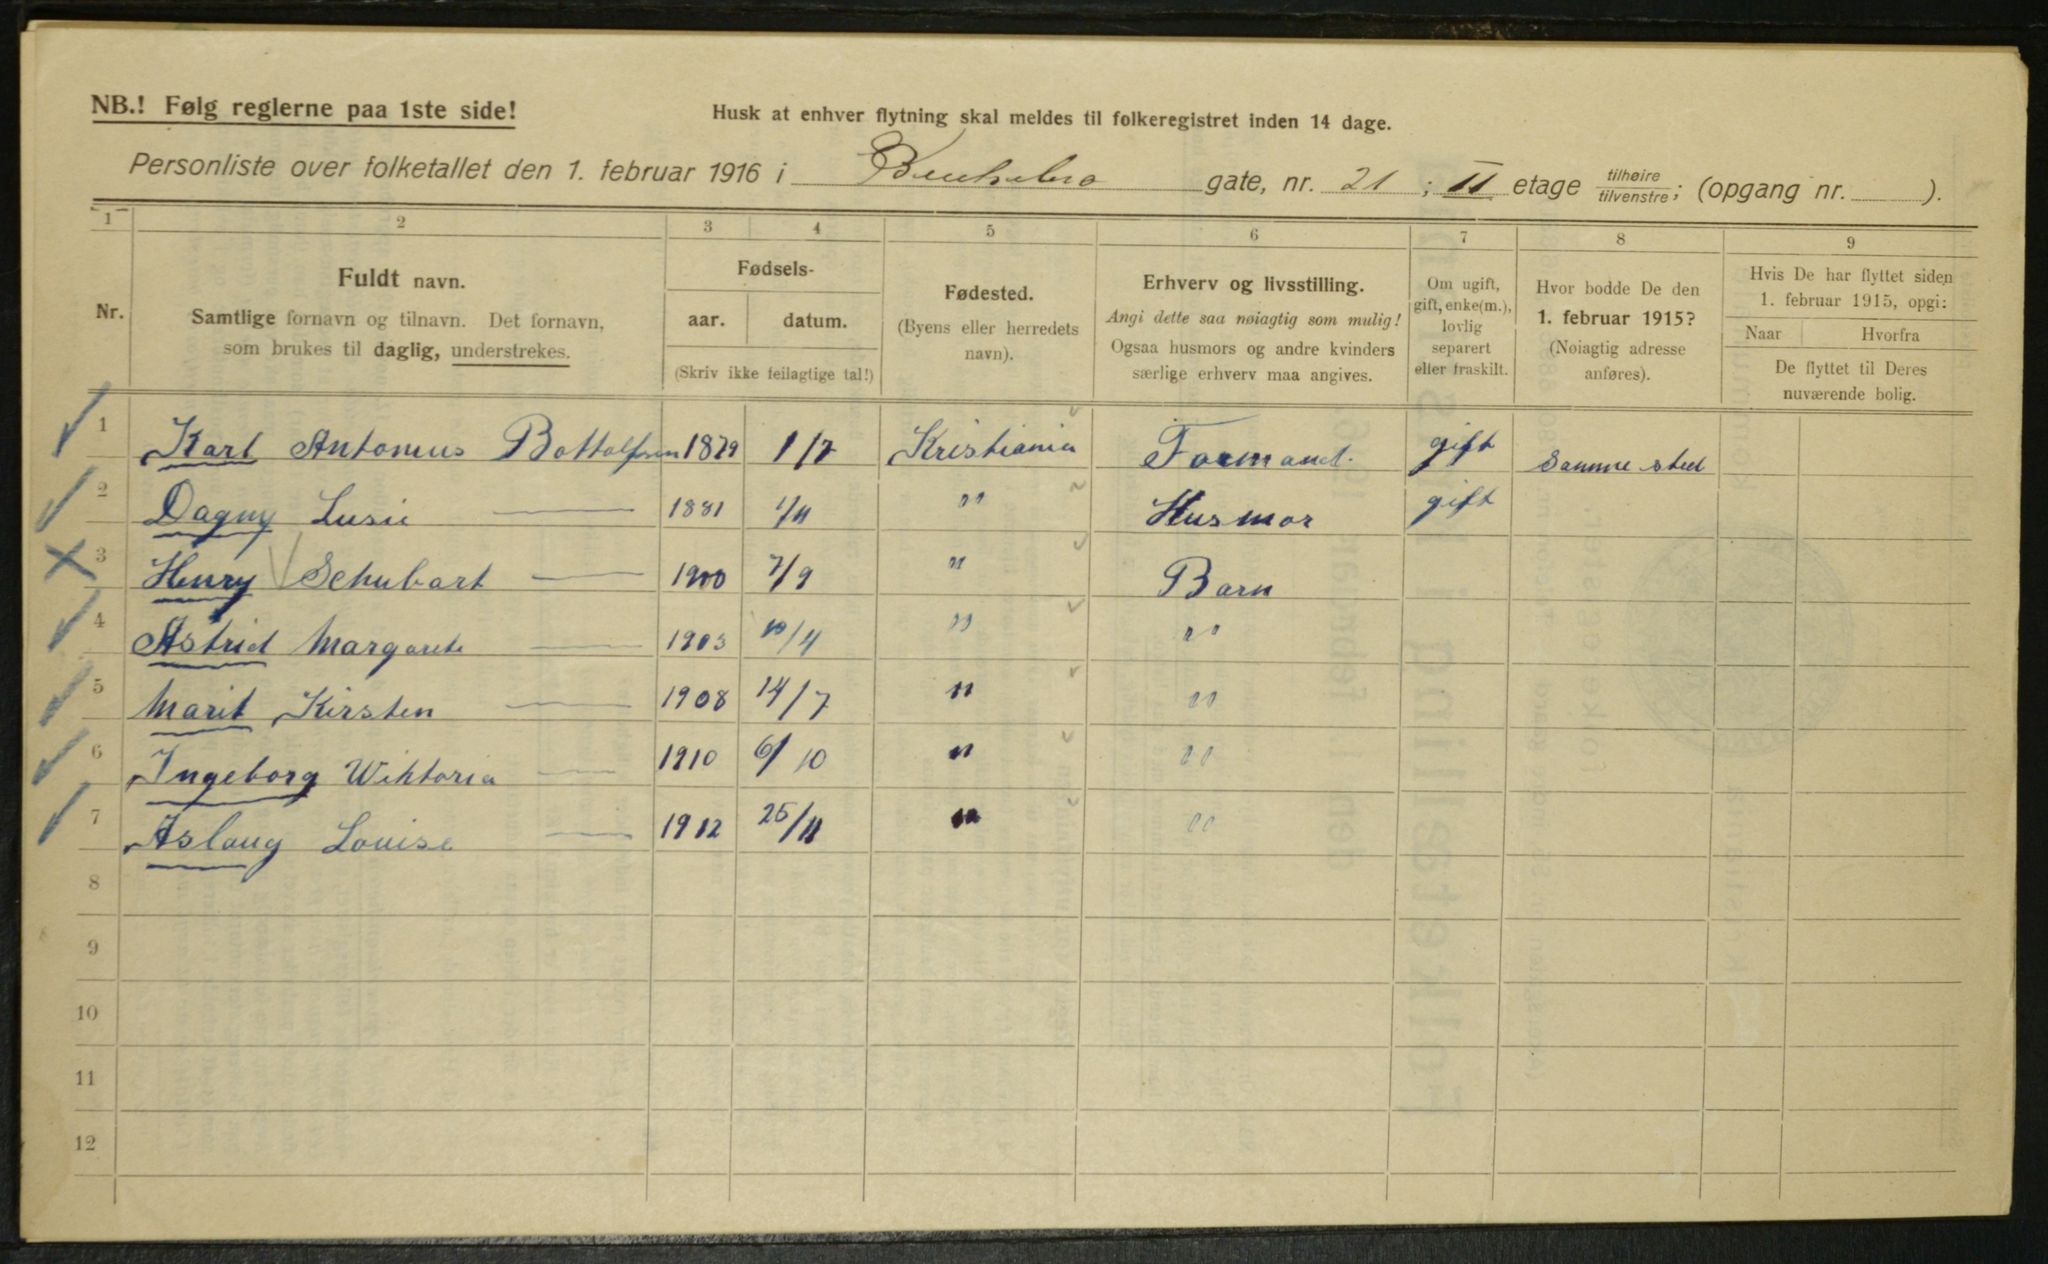 NB.! Følg reglerne paa 1ste side!
Husk at enhver flytning skal meldes til folkeregistret inden 14 dage.
Personliste over folketallet den 1. februar 1916 i gate, nr. 21 ; II etage tilhøire tilvenstre; (opgang nr. ).
1 2 3 4 5 6 7 8 9
Nr.
Fuldt navn.
Samtlige fornavn og tilnavn. Det fornavn,
som brukes til daglig, understrekes.
Fødsels-
aar. datum.
(Skriv ikke feilagtige tal!)
Fødested.
(Byens eller herredets
navn).
Erhverv og livsstilling.
Angi dette saa nøiagtig som mulig!
Ogsaa husmors og andre kvinders
særlige erhverv maa angives.
Om ugift,
gift, enke(m.),
lovlig
separert
eller fraskilt.
Hvor bodde De den
1. februar 1915?
(Nøiagtig adresse
anføres).
Hvis De har flyttet siden
1. februar 1915, opgi:
Naar Hvorfra
De flyttet til Deres
nuværende bolig.
1 Karl Antonius Bottolfsen 1879 1/7 Kristiania Formand. gift Samme sted
2 Dagny Lusie — 1881 1/11 " Husmor gift
3 Henry Schubart — 1900 7/9 " Barn
4 Astrid Margarete — 1903 10/4 " "
5 Marit Kirsten — 1908 14/7 " "
6 Ingeborg Wiktoria — 1910 6/10 " "
7 Aslaug Louise — 1912 25/11 " "
8
9
10
11
12